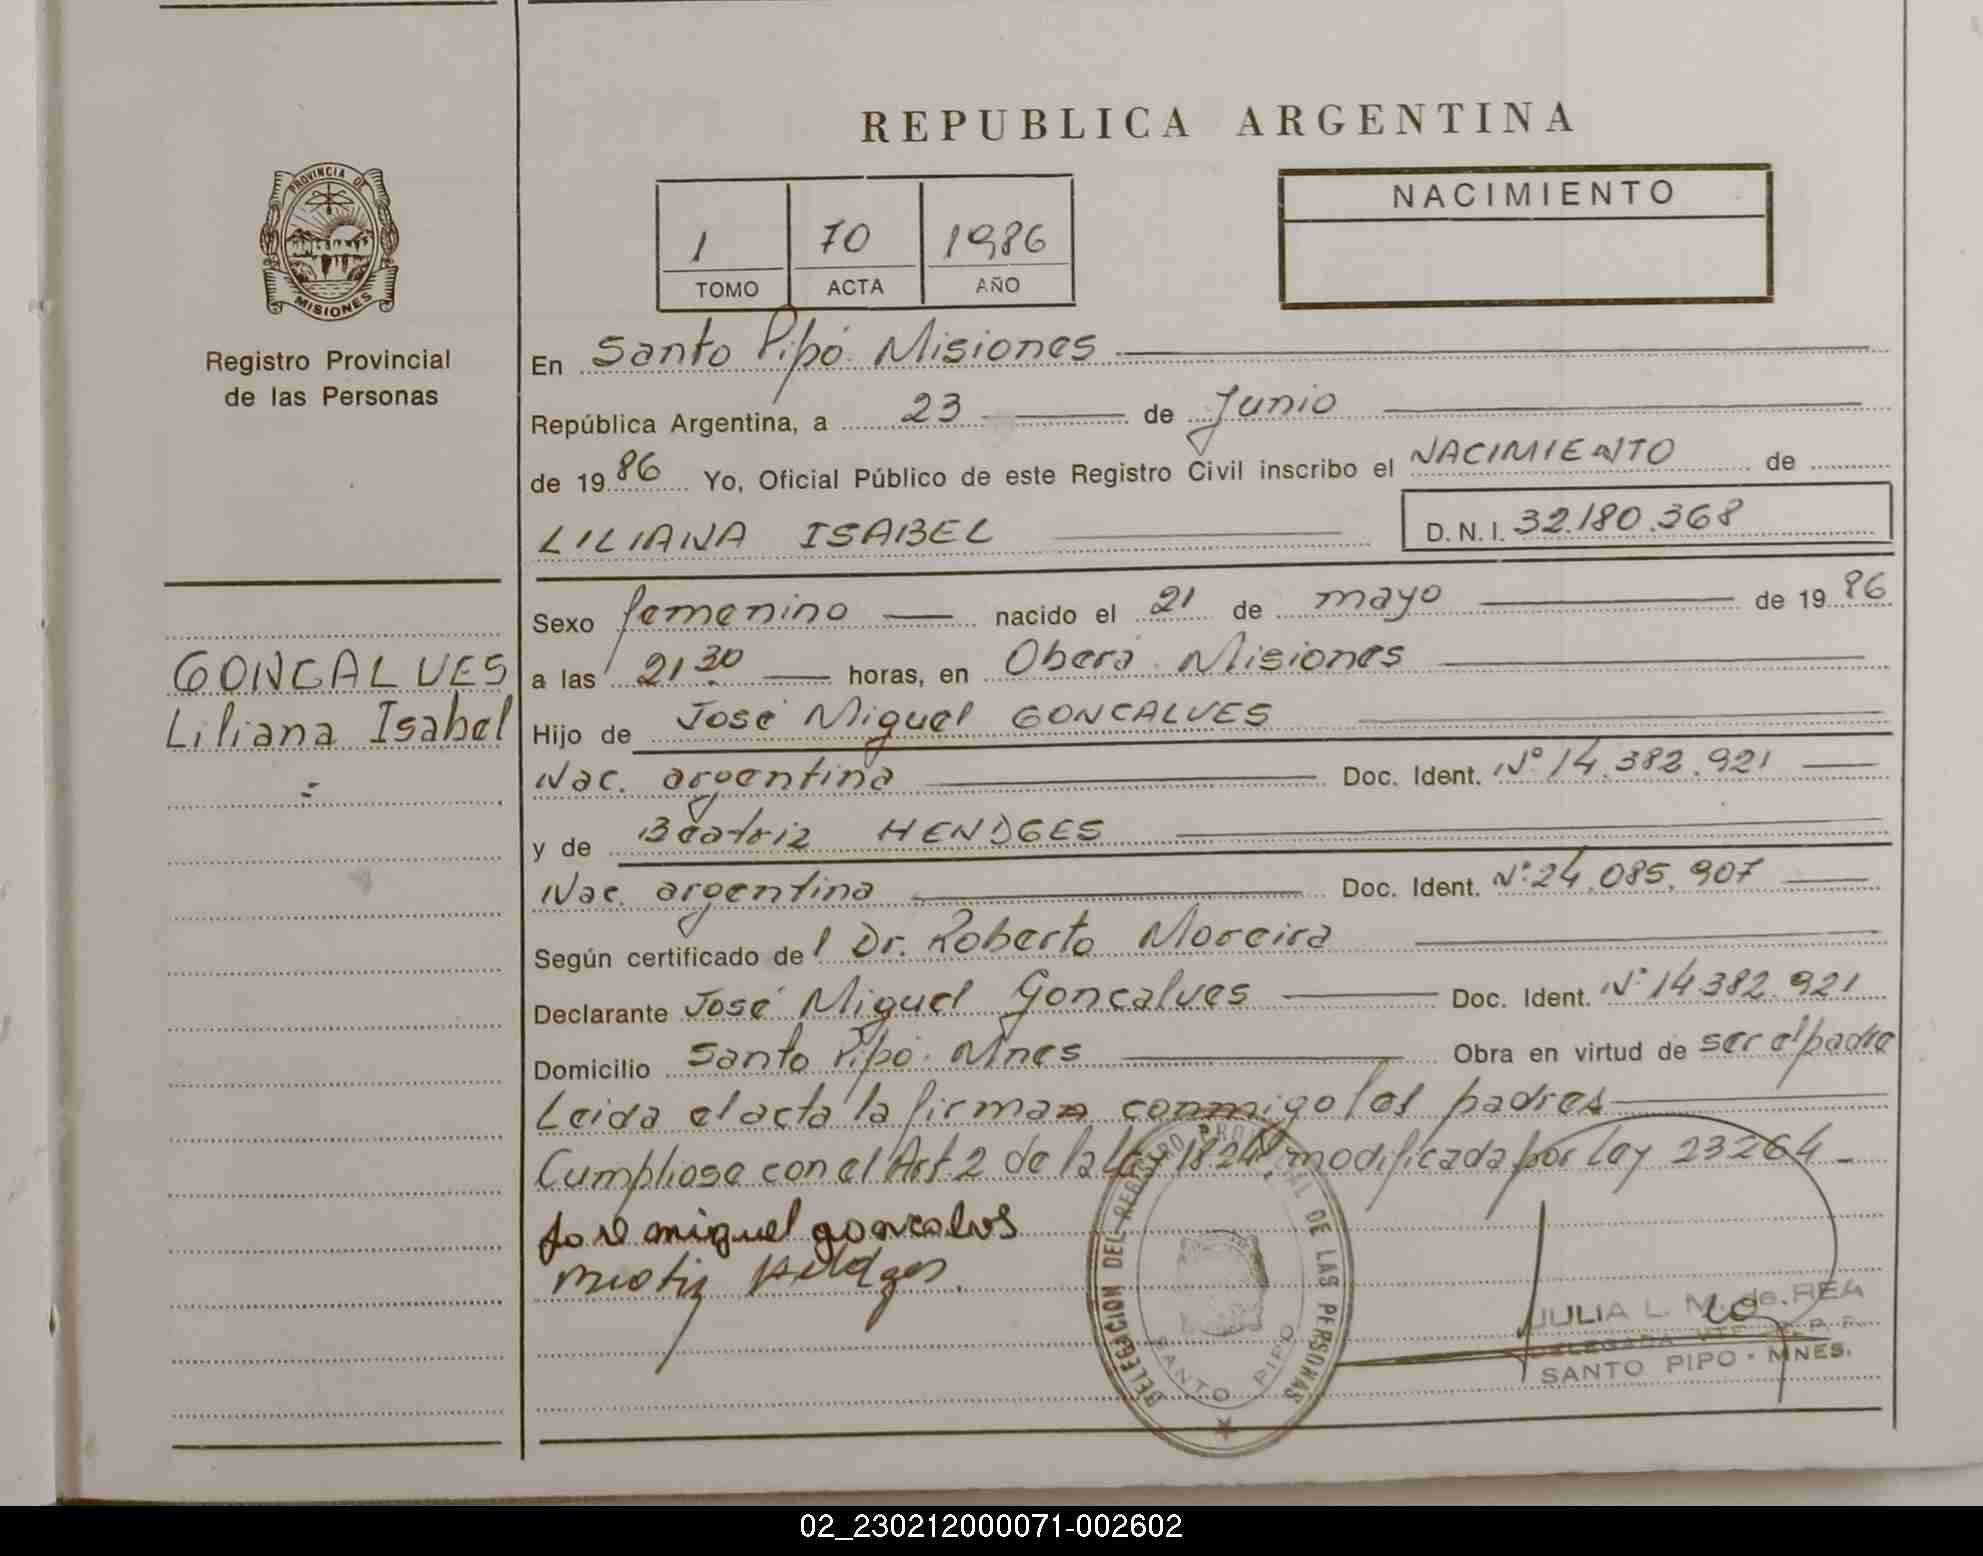 REPUBLICA ARGENTINA
PROVINCIA DE
MISIONES
Registro Provincial
de las Personas
1 70 1986
TOMO ACTA AÑO
NACIMIENTO
En Santo Pipó Misiones
República Argentina, a 23 de Junio
de 1986 Yo, Oficial Público de este Registro Civil inscribo el NACIMIENTO de
LILIANA ISABEL D.N.I. 32.180.368
GONCALVES
Liliana Isabel
Sexo femenino nacido el 21 de mayo de 1986
a las 21 30 horas, en Oberá Misiones
Hijo de José Miguel GONCALVES
Nac. argentina Doc. Ident. Nº 14.382.921
y de Beatriz HENDGES
Nac. argentina Doc. Ident. Nº 24.085.907
Según certificado del Dr. Roberto Moreira
Declarante José Miguel Goncalves Doc. Ident. Nº 14382.921
Domicilio Santo Pipó Mnes Obra en virtud de ser el padre
Leida el acta la firman conmigo los padres
Cumpliose con el Art. 2 de la Ley 1824, modificada por ley 23264
jose miguel goncalves
DELEGACION DEL REGISTRO PROVINCIAL DE LAS PERSONAS
SANTO PIPO
JULIA L. M. de REA
DELEGADA
SANTO PIPO - MNES.
02_230212000071-002602